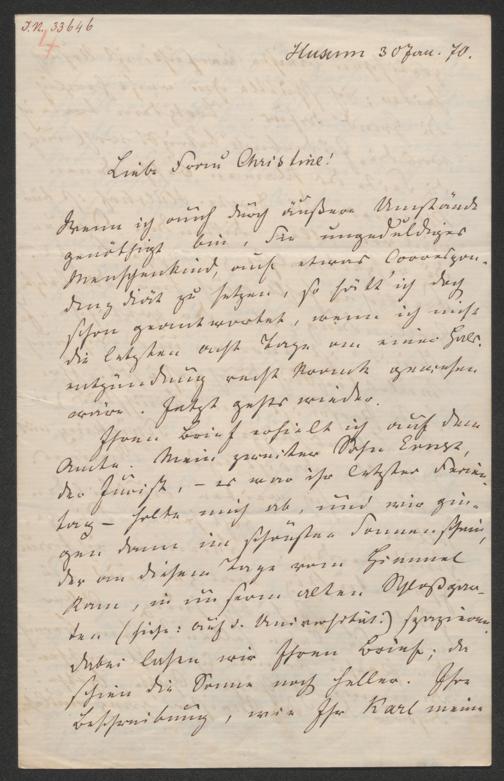 I.N. 33646
4
Husum 30 Jan. 70.
Liebe Frau Christine!
Wenn ich auch durch äußere Umstände
genöthigt bin, Sie ungeduldiges
Menschenkind, auf etwas Correspon-
denz diät zu setzen, so hätt' ich doch
schon geantwortet, wenn ich nicht
die letzten acht Tage an einer Hals-
entzündung recht krank gewesen
wäre. Jetzt gehts wieder.
Ihren Brief erhielt ich auf dem
Amte. Mein zweiter Sohn Ernst,
der Jurist, – es war ihr letzter Ferien-
tag – holte mich ab, und wir gin-
gen dann im schönsten Sonnenschein,
der an diesem Tage vom Himmel
kam, in unserm alten Schloßgar-
ten (siehe: auf d. Universität!) spazieren.
Dabei lasen wir Ihren Brief; da
schien die Sonne noch heller. Ihre
Beschreibung, wie Ihr Karl meine